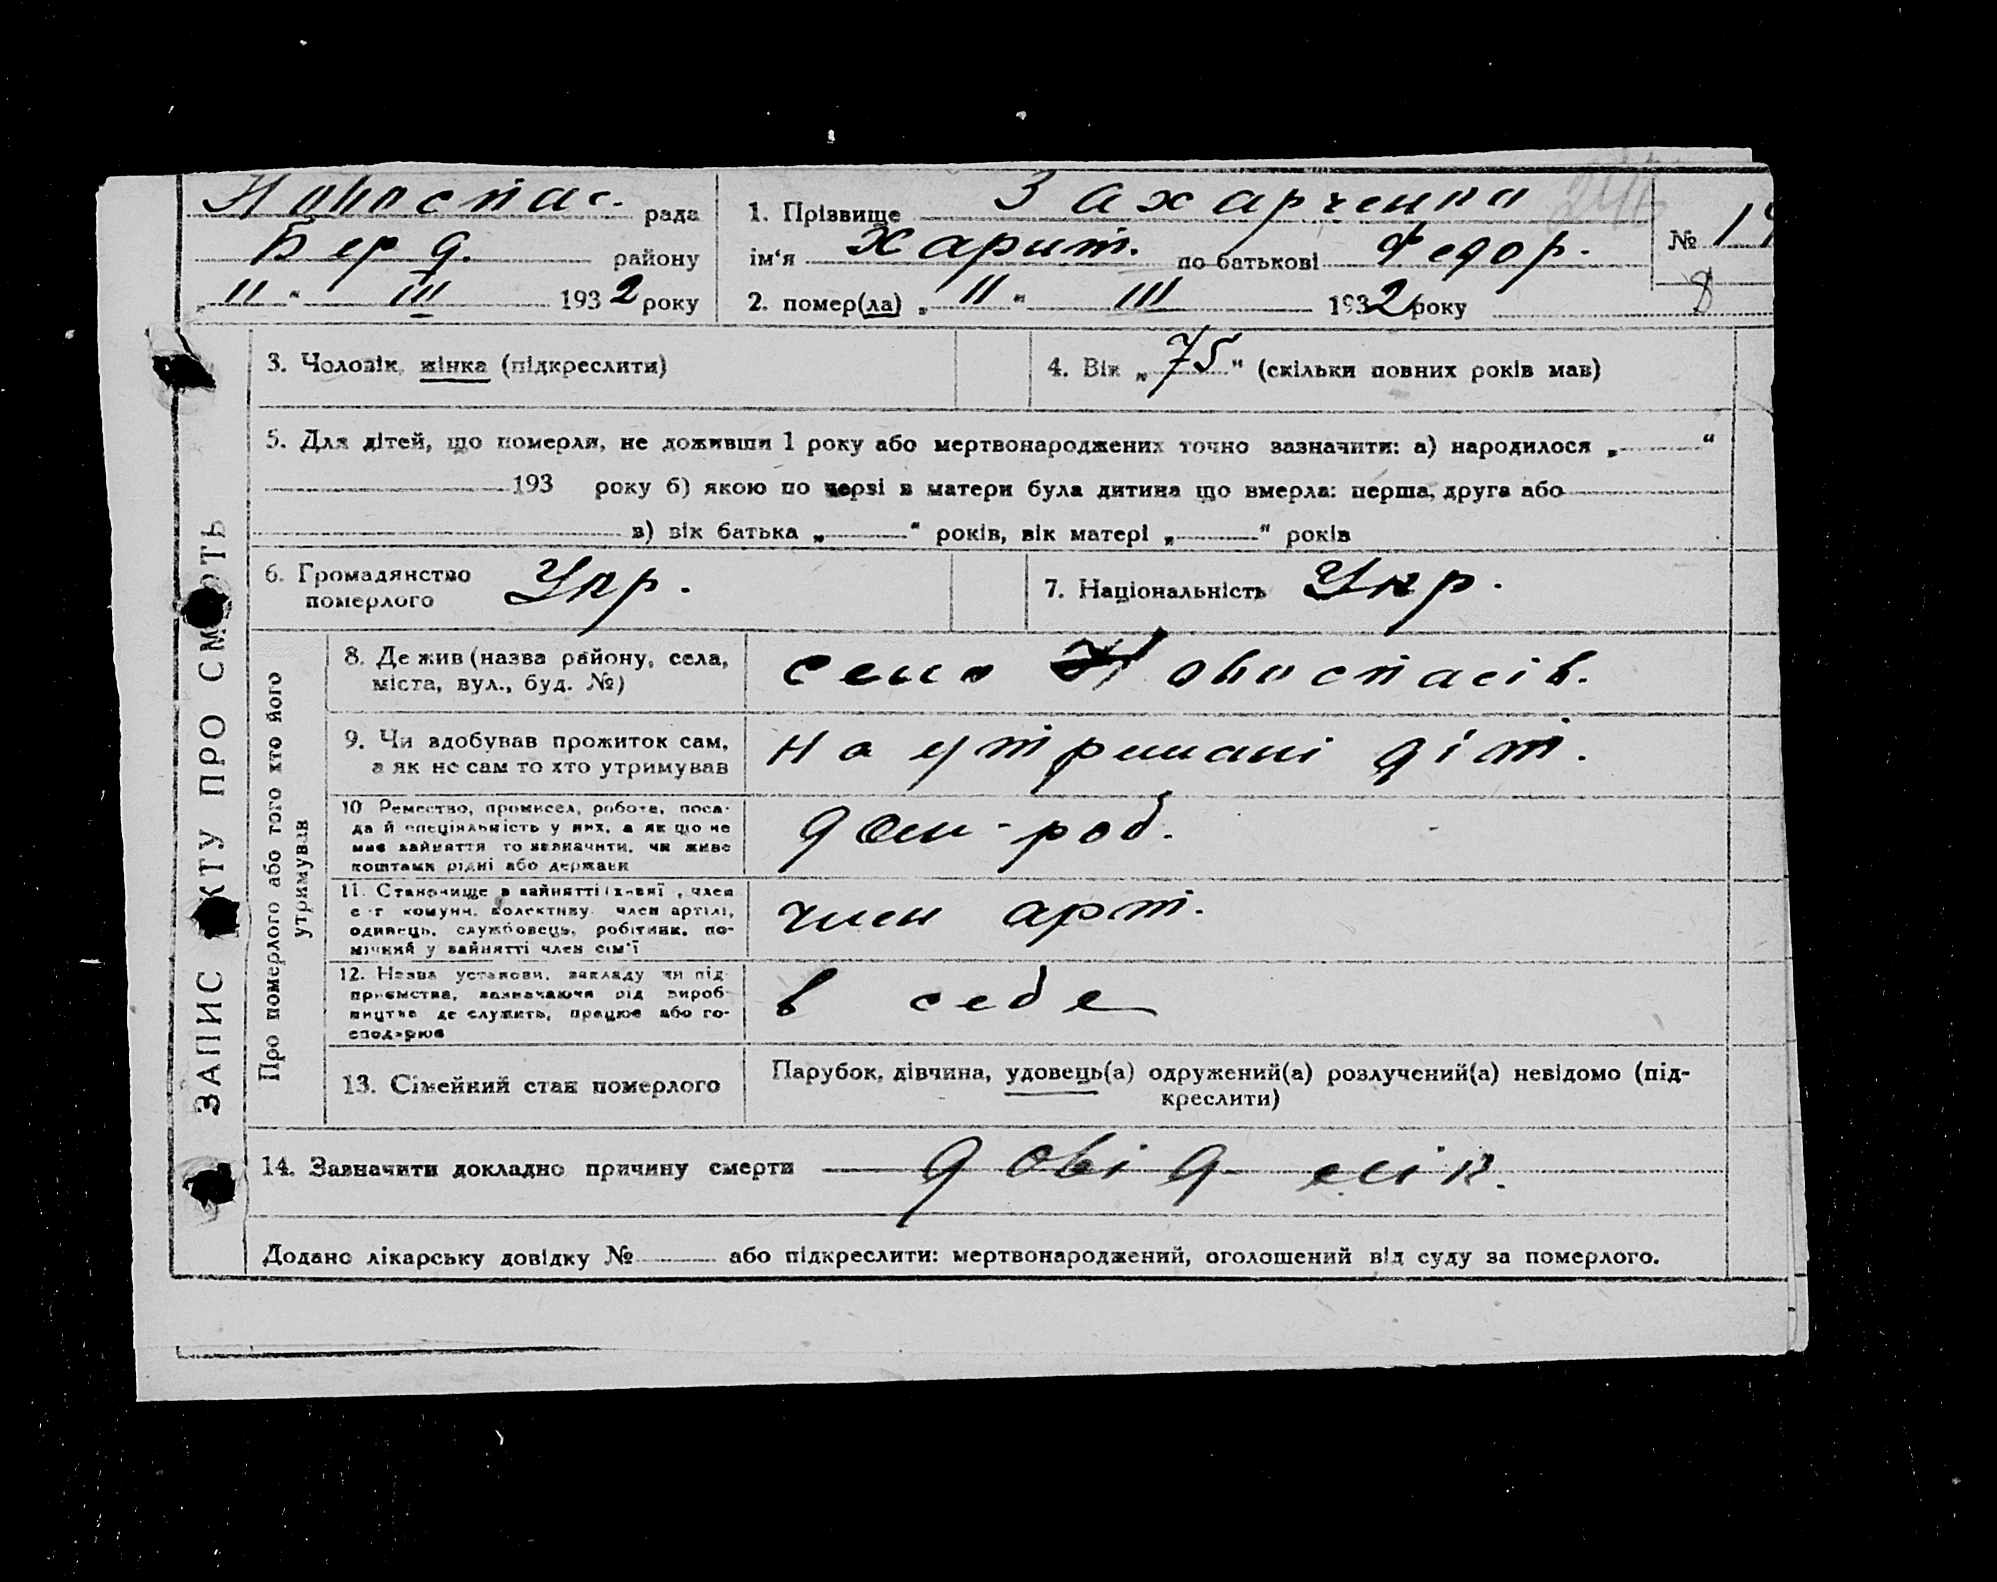 Новоспас. рада
Берд. району
„11“ III 1932 року
1. Прізвище Захарченко
ім‘я Харит. по батькові Федор.
2. помер(ла) „11“ III 1932 року
№
8
ЗАПИС АКТУ ПРО СМЕРТЬ
3. Чоловік, жінка (підкреслити)
4. Вік „75“ (скільки повних років мав)
5. Для дітей, що померли, не доживши 1 року або мертвонароджених точно зазначити: а) народилося „ “
193 року б) якою по черзі в матери була дитина що вмерла: перша, друга або
в) вік батька „ “ років, вік матері „ “ років
6. Громадянство
померлого Укр.
7. Національність Укр.
Про померлого або того хто його
утримував
8. Де жив (назва району, села,
міста, вул., буд. №)
село Новоспасів.
9. Чи здобував прожиток сам,
а як не сам то хто утримував
на утримані діт.
10 Ремество, промисел, робота, поса-
да й спеціяльність у них, а як що не
мав зайняття то зазначити, чи живе
коштами рідні або держави
дом-роб.
11. Становище в зайнятті (хазяї, член
с-г комуни, колективу, член артілі,
одинець, службовець, робітник, по-
мічний у зайнятті член сім'ї
член арт.
12. Назва установи, закладу чи під-
приємства, зазначаючи рід вироб-
ництва де служить, працює або го-
сподарює
в себе
13. Сімейний стан померлого
Парубок, дівчина, удовець(а) одружений(а) розлучений(а) невідомо (під-
креслити)
14. Зазначити докладно причину смерти довід лік.
Додано лікарську довідку № або підкреслити: мертвонароджений, оголошений від суду за померлого.